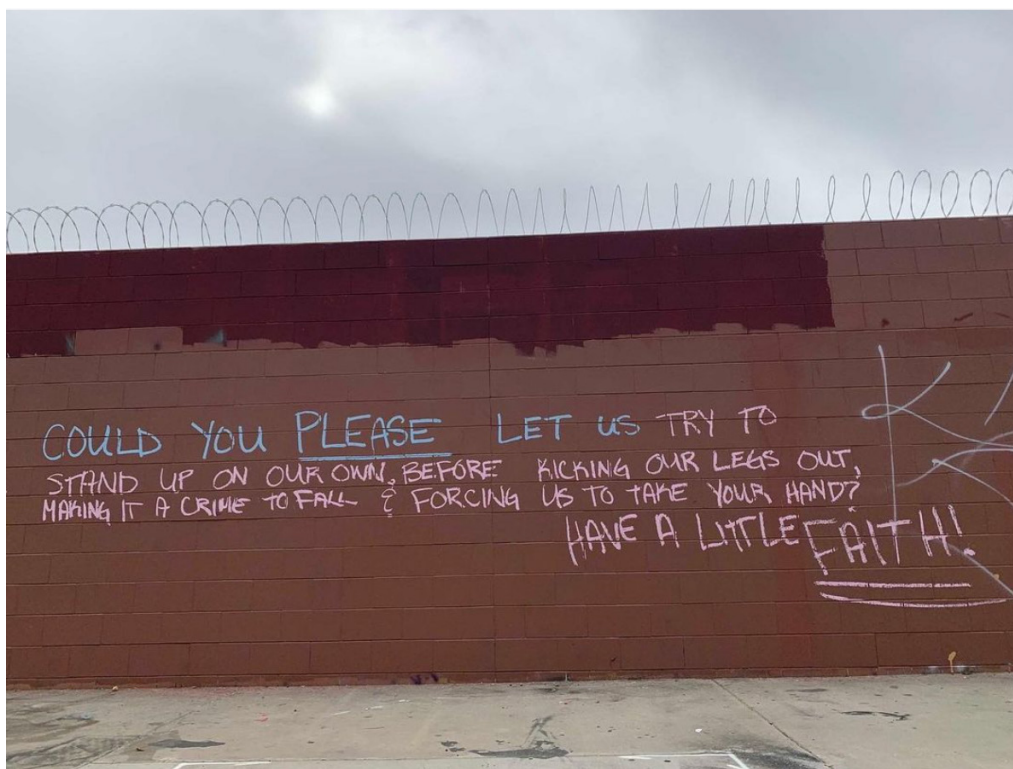 COULD YOU PLEASE LET US TRY TO
STAND UP ON OUR OWN, BEFORE KICKING OUR LEGS OUT,
MAKING IT A CRIME TO FALL & FORCING US TO TAKE YOUR HAND?
HAVE A LITTLE FAITH!